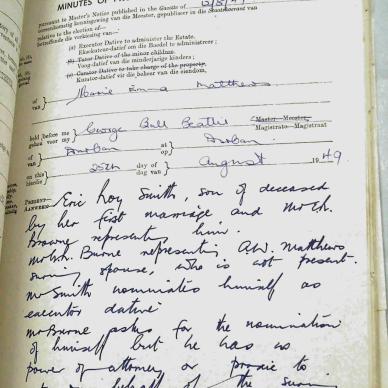 MINUTES OF
pursuant to Master's Notice published in the Gazette of 12/8/49
ooreenkomstig kennisgewing van die Meester, gepubliseer in die Staatskoerant van
relative to the election of—
betreffende die verkiesing van—
(a) Executor Dative to administer the Estate.
Eksekuteur-datief om die Boedel te administreer;
(b) Tutor Dative of the minor children.
Voog-datief van die minderjarige kinders;
(c) Curator Dative to take charge of the property.
Kurator-datief vir die beheer van die eiendom,
of
van
Marie Emma Matthews
held before me
gehou voor my
George Bull Beattie
Master—Meester
Magistrate-Magistraat
of
van
Durban
at
op
Durban
on this
hierdie
25th
day of
dag van
August
1949.
PRESENT—
AANWESIG—
Eric Roy Smith, son of deceased
by her first marriage, and Mr
Browne represents him.
Mr Burne representing A.W. Matthews
surviving spouse, who is not present.
Mr Smith nominates himself as
executor dative
Mr Burne asks for the nomination
of himself but he has no
power of attorney or to
behalf of the